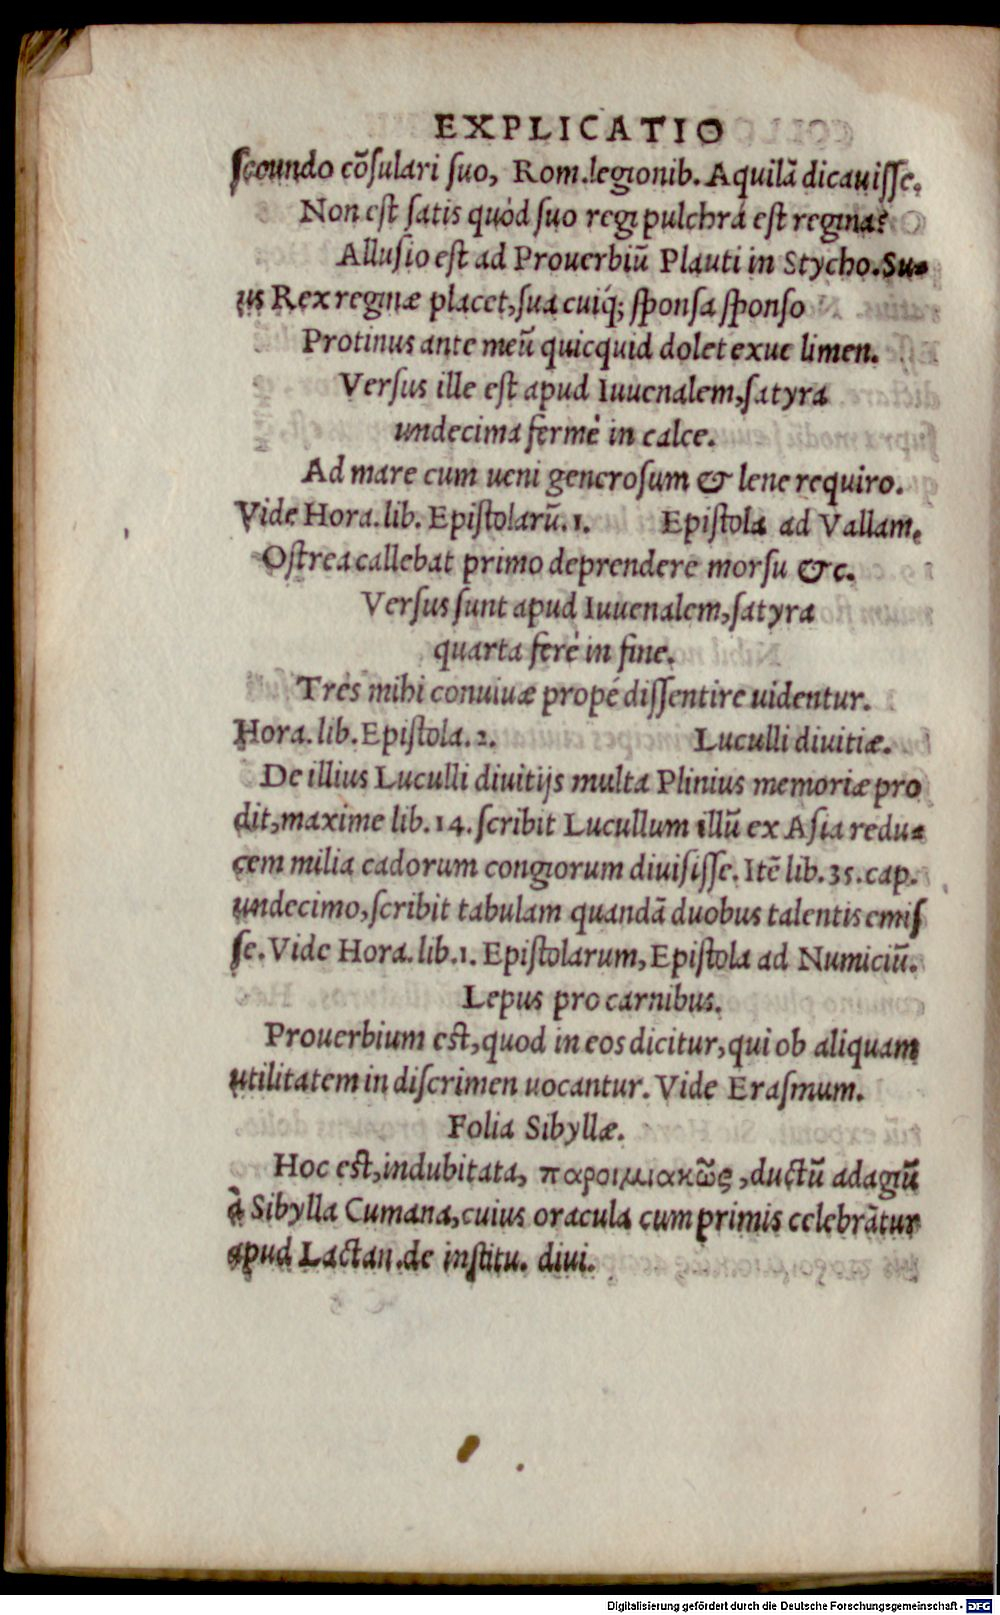 EXPLICATIO
secundo cōsulari suo, Rom.legionib. Aquilā dicauisse.
Non est satis quód suo regi pulchra est regina?
Allusio est ad Prouerbiū Plauti in Stycho. Su-
us Rex reginæ placet, sua cuiq́; sponsa sponso
Protinus ante meū quicquid dolet exue limen.
Versus ille est apud Iuuenalem, satyra
undecima fermè in calce.
Ad mare cum ueni generosum & lene requiro.
Vide Hora.lib. Epistolarū.1. Epistola ad Vallam.
Ostrea callebat primo deprendere morsu &c.
Versus sunt apud Iuuenalem, satyra
quarta ferè in fine.
Tres mihi conuiuæ propé dissentire uidentur.
Hora.lib.Epistola.2. Luculli diuitiæ.
De illius Luculli diuitijs multa Plinius memoriæ pro
dit, maxime lib.14. scribit Lucullum illū ex Asia redu-
cem milia cadorum congiorum diuisisse. Itē lib.35.cap.
undecimo, scribit tabulam quandā duobus talentis emis
se. Vide Hora.lib.1. Epistolarum, Epistola ad Numiciū.
Lepus pro carnibus.
Prouerbium est, quod in eos dicitur, qui ob aliquam
utilitatem in discrimen uocantur. Vide Erasmum.
Folia Sibyllæ.
Hoc est, indubitata, παροιμιακῶς, ductū adagiū
à Sibylla Cumana, cuius oracula cumprimis celebrātur
apud Lactan.de institu. diui.
Digitalisierung gefördert durch die Deutsche Forschungsgemeinschaft - DFG